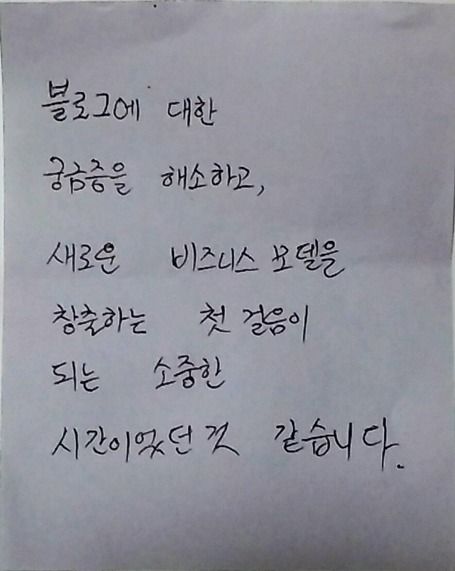 블로그에 대한
궁금증을 해소하고,
새로운 비즈니스 모델을
창출하는 첫 걸음이
되는 소중한
시간이었던 것 같습니다.